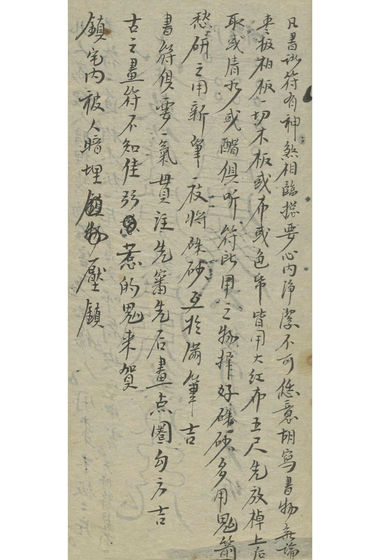 凡書以符有神煞相臨總要心內淨潔不可恁意胡寫書物無論
枣板柏板一切木板或布或色帋皆用大红布五尺先放棹上后
取或清水或醋俱可符此用之物择好硃砂多用鬼箭
愁研之用新筆一枝将硃砂互扵滿筆吉
書符俱要一氣貫注先籌先后畫点圈勾方吉
古之畫符不知佳巧惹的鬼来賀
鎮宅內被人暗埋鎮物壓鎮